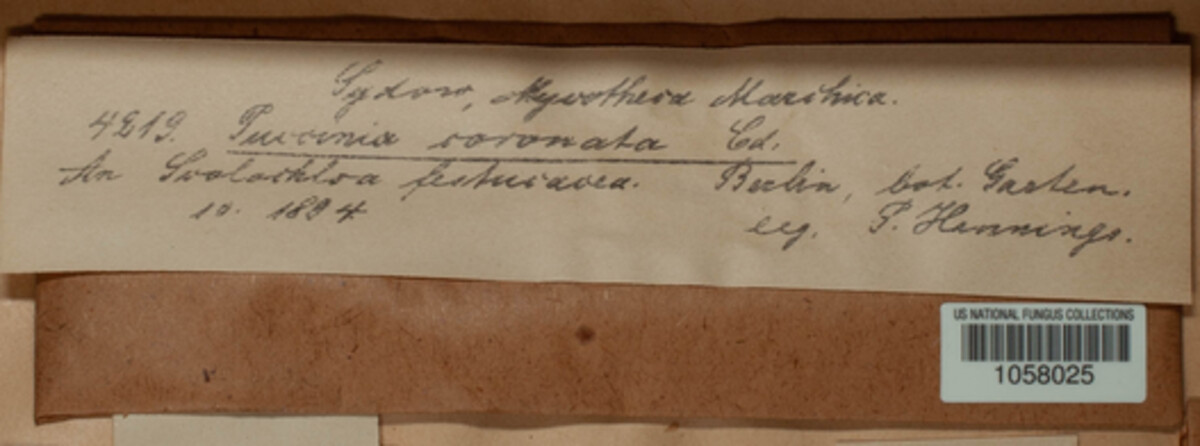 Sydow, Mycotheca Marchica.
4219. Puccinia coronata Cd.
An Scolochloa festucacea. Berlin, bot. Garten.
10. 1894 leg. P. Hennings.
US NATIONAL FUNGUS COLLECTIONS
1058025